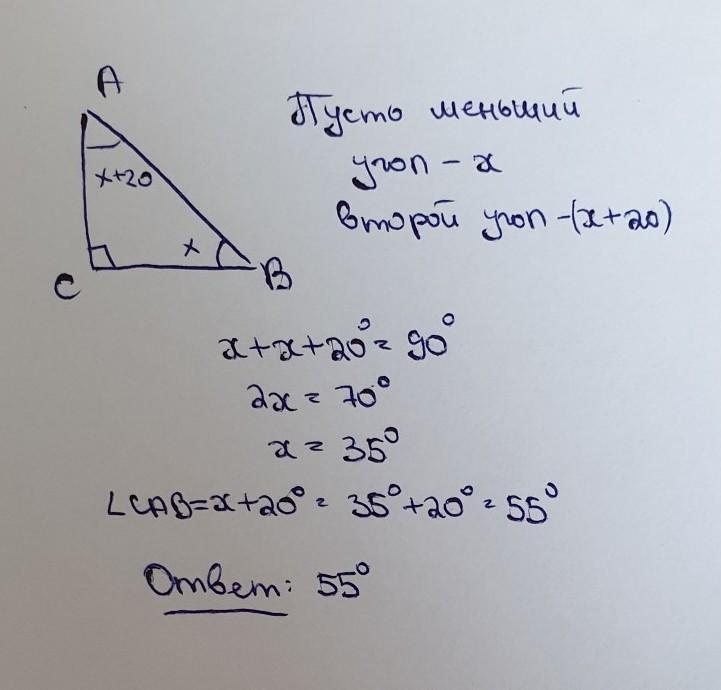 A
Пусть меньший
угол - x
x+20
второй угол -(x+20)
x
C
B
x+x+20°= 90°
2x = 70°
x = 35°
∠CAB=x+20° = 35°+20° = 55°
Ответ: 55°